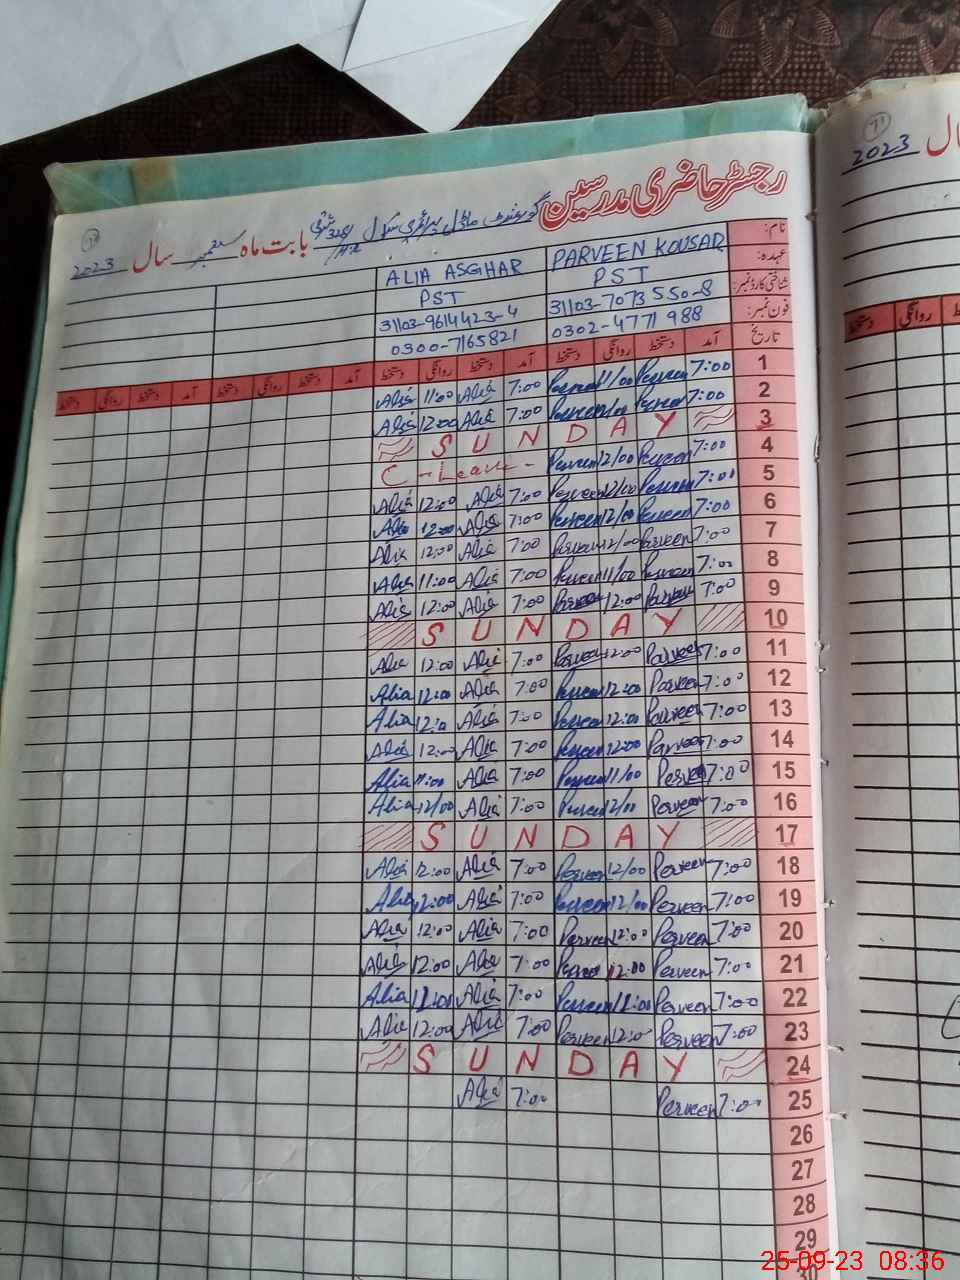 رجسٹر حاضری مدرسین
گورنمنٹ ماڈل پرائمری سکول
بابت ماہ ستمبر سال 2023
71
2023
نام: PARVEEN KOUSAR ALIA ASGHAR
عہدہ: PST PST
شناختی کارڈ نمبر: 31103-7073550-8 31103-9614423-4
فون نمبر: 0302-4771988 0300-7165821
تاریخ آمد دستخط روانگی دستخط آمد دستخط روانگی دستخط آمد دستخط روانگی دستخط آمد دستخط روانگی دستخط
1 7:00 Parveen 11/00 Parveen 7:00 Alia 11:00 Alia
2 7:00 Parveen Parveen 7:00 Alia 12:00 Alia
3 SUNDAY
4 7:00 Parveen 12/00 Parveen C-Leave-
5 7:00 Parveen 12/00 Parveen 7:00 Alia 12:00 Alia
6 7:00 Parveen 12/00 Parveen 7:00 Alia 12:00 Alia
7 7:00 Parveen 12/00 Parveen 7:00 Alia 12:00 Alia
8 7:00 Parveen 11/00 Parveen 7:00 Alia 11:00 Alia
9 7:00 Parveen 12:00 Parveen 7:00 Alia 12:00 Alia
10 SUNDAY
11 7:00 Parveen 12:00 Parveen 7:00 Alia 12:00 Alia
12 7:00 Parveen 12:00 Parveen 7:00 Alia 12:00 Alia
13 7:00 Parveen 12:00 Parveen 7:00 Alia 12:00 Alia
14 7:00 Parveen 12:00 Parveen 7:00 Alia 12:00 Alia
15 7:00 Parveen 11/00 Parveen 7:00 Alia 11:00 Alia
16 7:00 Parveen 12/00 Parveen 7:00 Alia 12/00 Alia
17 SUNDAY
18 7:00 Parveen 12/00 Parveen 7:00 Alia 12:00 Alia
19 7:00 Parveen 12/00 Parveen 7:00 Alia 12:00 Alia
20 7:00 Parveen 12:00 Parveen 7:00 Alia 12:00 Alia
21 7:00 Parveen 12:00 Parveen 7:00 Alia 12:00 Alia
22 7:00 Parveen 11:00 Parveen 7:00 Alia 11:00 Alia
23 7:00 Parveen 12:0 Parveen 7:00 Alia 12:00 Alia
24 SUNDAY
25 7:00 Parveen 7:00 Alia
26
27
28
29
30
71
2023
روانگی دستخط
25-09-23 08:36